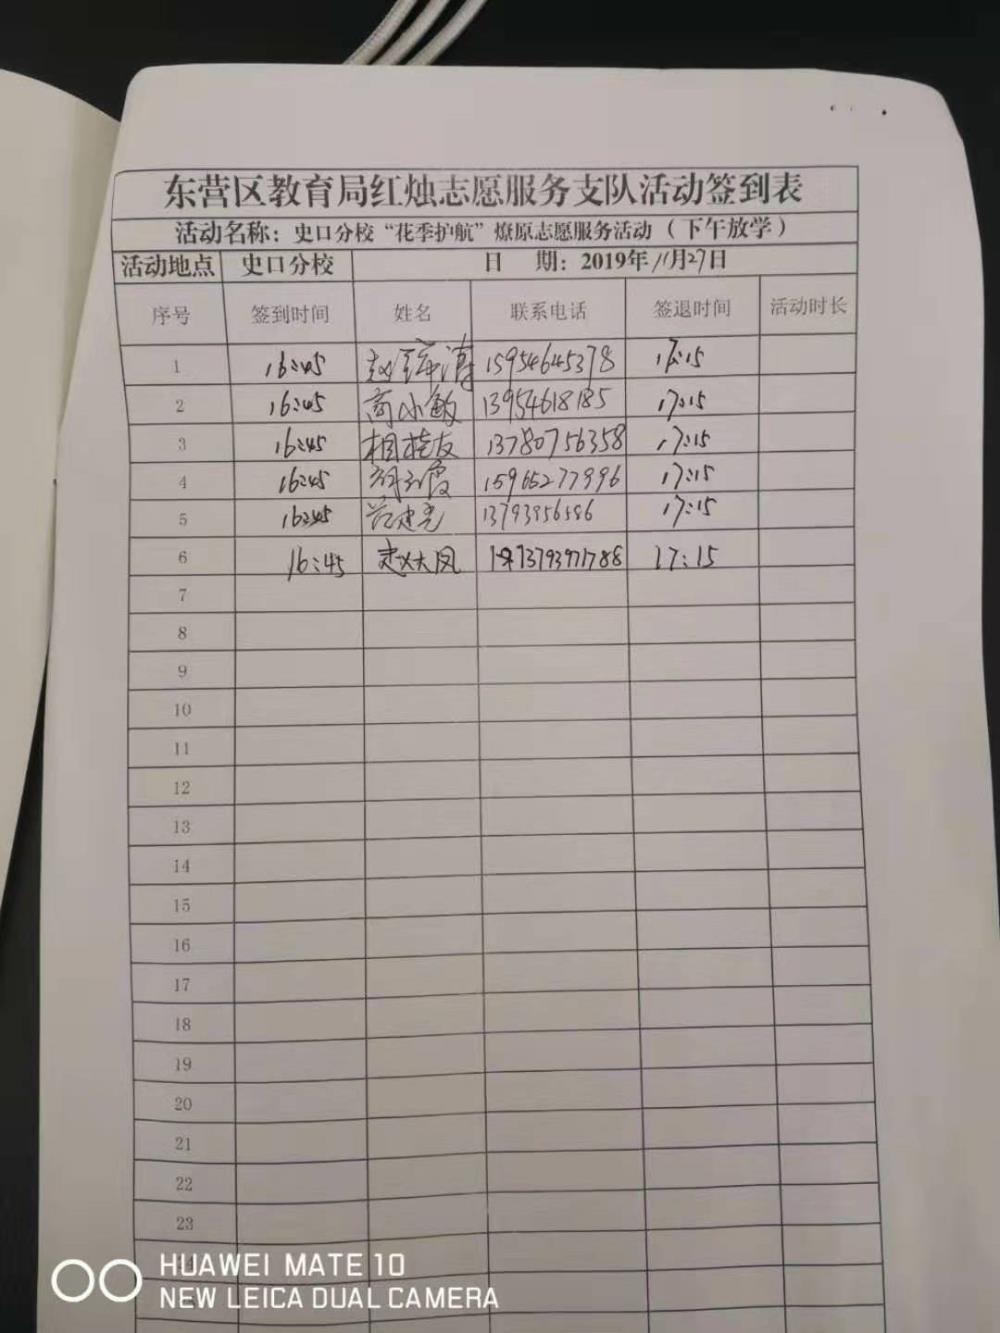 东营区教育局红烛志愿服务支队活动签到表
活动名称：史口分校“花季护航”燎原志愿服务活动（下午放学）
活动地点 史口分校 日 期：2019年11月27日
序号 签到时间 姓名 联系电话 签退时间 活动时长
1 16:45 赵 15954645378 17:15
2 16:45 商小敏 13954618185 17:15
3 16:45 相桂友 13780756358 17:15
4 16:45 胡玉霞 15965277996 17:15
5 16:45 建 13793956596 17:15
6 16:45 赵大凤 13793971788 17:15
7
8
9
10
11
12
13
14
15
16
17
18
19
20
21
22
23
HUAWEI MATE 10
NEW LEICA DUAL CAMERA